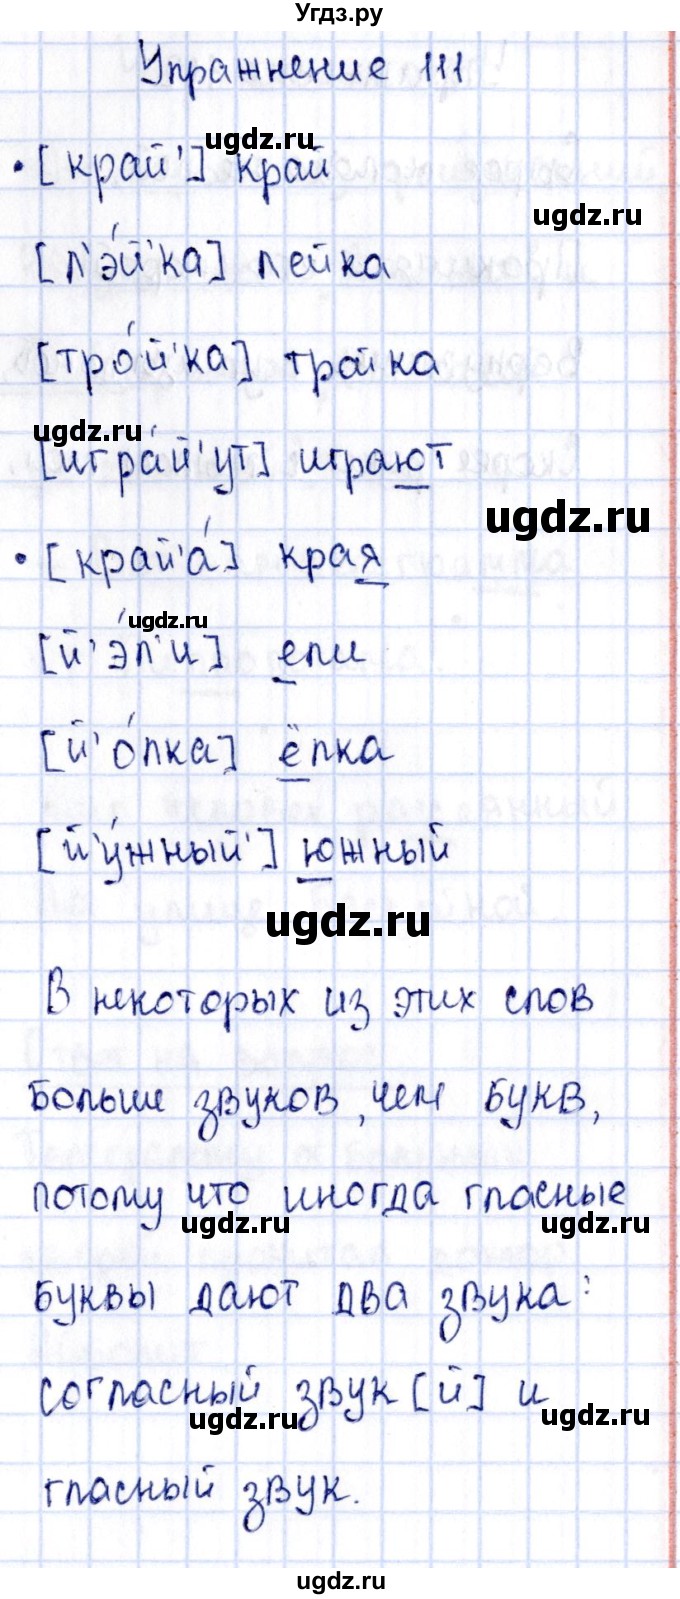 Угдз.ру
Упражнение 111
ugdz.ru
• [край'] край
ugdz.ru
[л'э́й'ка] лейка
[тро́й'ка] тройка
ugdz.ru
[игра́й'ут] играют
ugdz.ru
• [край'а́] края
ugdz.ru
[й'э́л'и] ели
[й'о́лка] ёлка
[й'у́жный'] южный
ugdz.ru
В некоторых из этих слов
больше звуков, чем букв,
потому что иногда гласные
ugdz.ru ugdz.ru
буквы дают два звука:
согласный звук [й] и
ugdz.ru ugdz.ru
гласный звук.
ugdz.ru